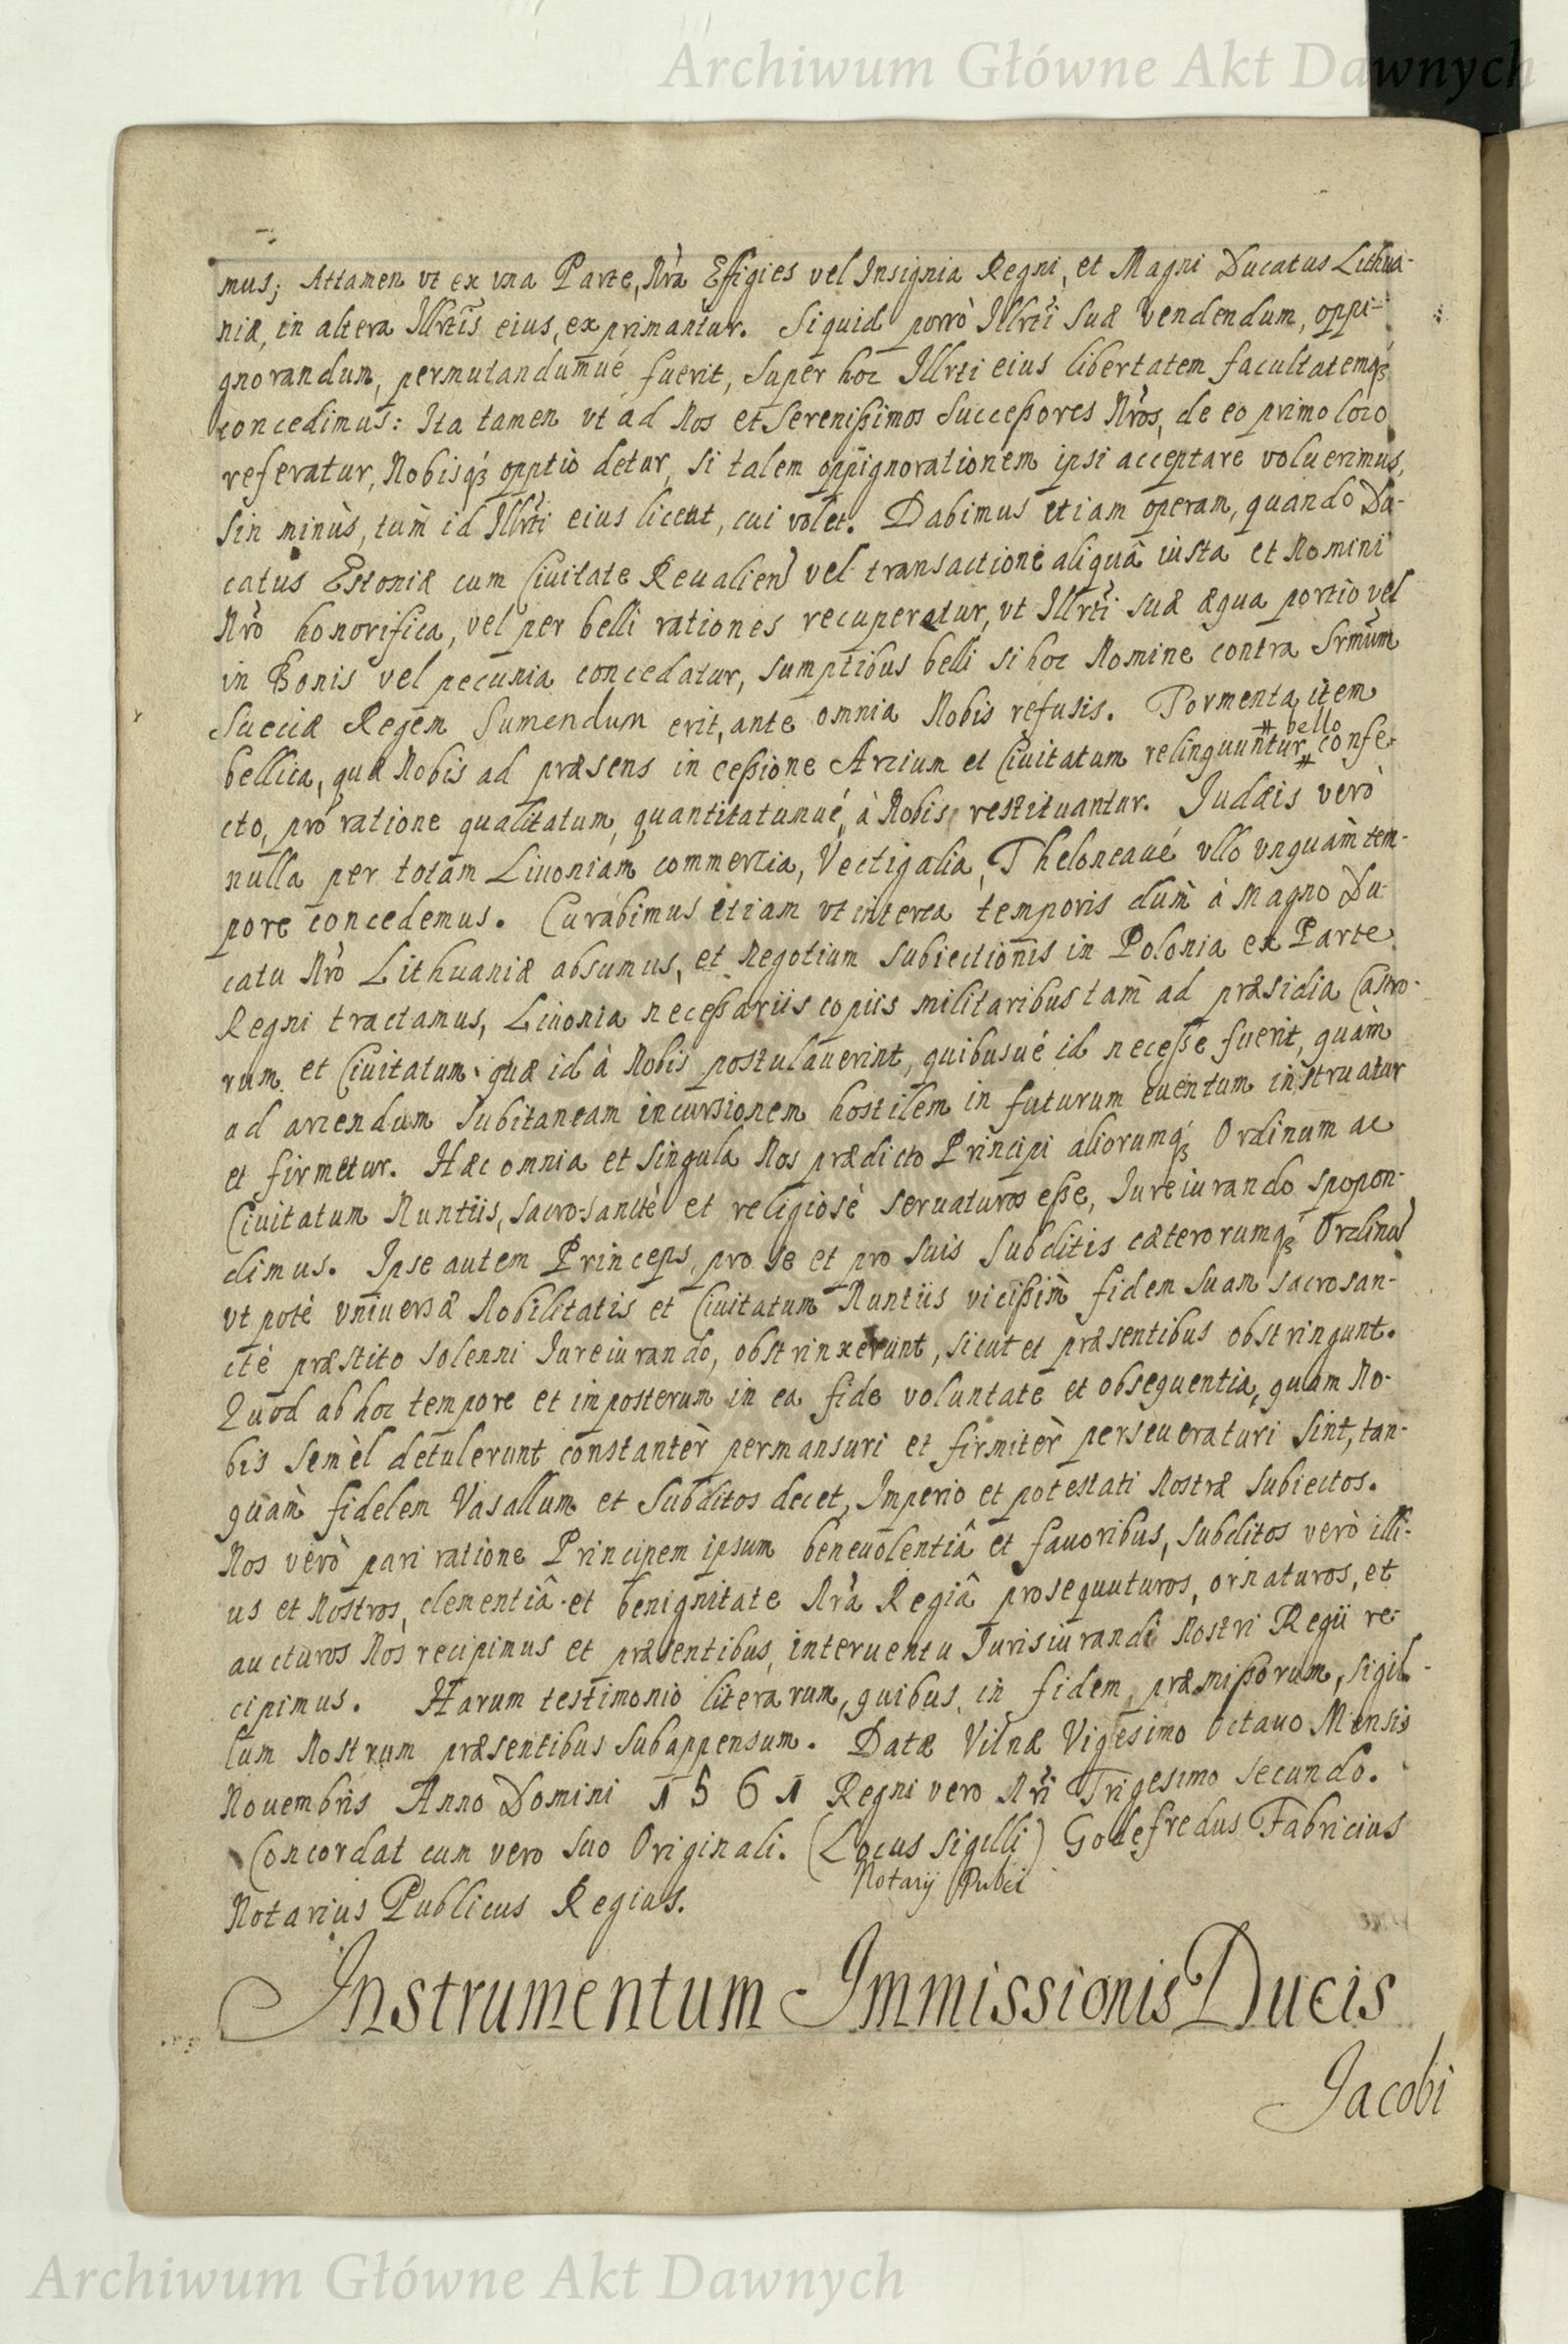 Archiwum Główne Akt Dawnych
mus; Attamen vt ex vna Parte, Nrà Effigies vel Insignia Regni, et Magni Ducatus Lithua-
niæ, in altera Illrtis eius, exprimantur. Siquid porrò Illrti suæ vendendum, oppi-
gnorandum, permutandumué fuerit, super hoc Illrti eius libertatem facultatemq́ꝫ
concedimus: Ita tamen vt ad Nos et Serenißimos Succeßores Nros, de eo primo loco
referatur, Nobisq́ꝫ opptio detur, si talem oppignorationem ipsi acceptare voluerimus,
sin minùs, tum id Illrti eius liceat, cui volet. Dabimus etiam operam, quando Du-
catus Estoniæ cum Ciuitate Reualien vel transactione aliquâ iusta et Nomini
Nrò honorifica, vel per belli rationes recuperatur, vt Illrti suæ æqua portio vel
in Bonis vel pecunia concedatur, sumptibus belli si hoc Nomine contra Srmum
Sueciæ Regem sumendum erit, ante omnia Nobis refusis. Tormenta item
bellica, quæ Nobis ad præsens in ceßione Arcium et Ciuitatum relinquuntur, # bello # confe-
cto, pro ratione qualitatum, quantitatumué, à Nobis restituantur. Judæis verò
nulla per totam Liuoniam commertia, Vectigalia, Theloneaué vllo vnquàm tem-
pore concedemus. Curabimus etiam vt interea temporis dum à Magno Du-
catu Nrò Lithuaniæ absumus, et Negotium Subiectionis in Polonia ex Parte
Regni tractamus, Liuonia neceßariis copiis militaribus tam ad præsidia Castro-
rum et Ciuitatum quæ id à Nobis postulauerint, quibusué id neceße fuerit, quàm
ad arcendum subitaneam incursionem hostilem in futurum euentum instruatur
et firmetur. Hæc omnia et singula Nos prædicto Principi aliorumq́ꝫ Ordinum ac
Ciuitatum Nuntiis, sacro-sanctè et religiosè seruaturos eße, Jureiurando spopon-
dimus. Ipse autem Princeps, pro se et pro suis subditis cæterorumq́ꝫ Ordinu
vt potè vniuersæ Nobilitatis et Ciuitatum Nuntiis vicißim fidem suam sacrosan-
ctè præstito solenni Jureiurando, obstrinxerunt, sicut et præsentibus obstringunt.
Quod ab hoc tempore et imposterum in ea fide voluntate et obsequentia, quam No-
bis semèl detulerunt constantèr permansuri et firmitèr perseueraturi sint, tan-
quàm fidelem Vasallum et Subditos decet, Imperio et potestati Nostræ subiectos.
Nos verò pari ratione Principem ipsum beneuolentiâ et fauoribus, subditos verò illi-
us et Nostros, clementiâ et benignitate Nrà Regiâ prosequuturos, ornaturos, et
aucturos Nos recipimus et præsentibus, interuentu Jurisiurandi Nostri Regii re-
cipimus. Harum testimonio literarum, quibus, in fidem præmißorum, sigil-
lum Nostrum præsentibus subappensum. Datæ Vilnæ Vigesimo Octauo Mensis
Nouembris Anno Domini 1561 Regni vero Nri Trigesimo secundo.
Concordat cum vero suo Originali. (Locus Sigilli) Godefredus Fabricius
Notarij Pubci
Notarius Publicus Regius.
Instrumentum Immissionis Ducis
Jacobi
Archiwum Główne Akt Dawnych